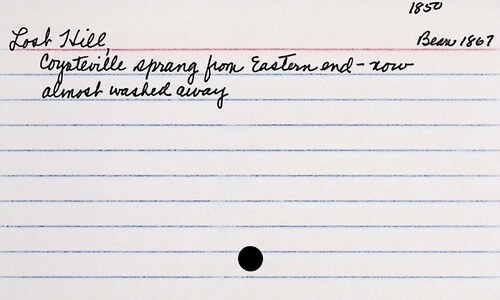 1850
Lost Hill,
Bean 1867
Coyoteville sprang from Eastern end - now
almost washed away